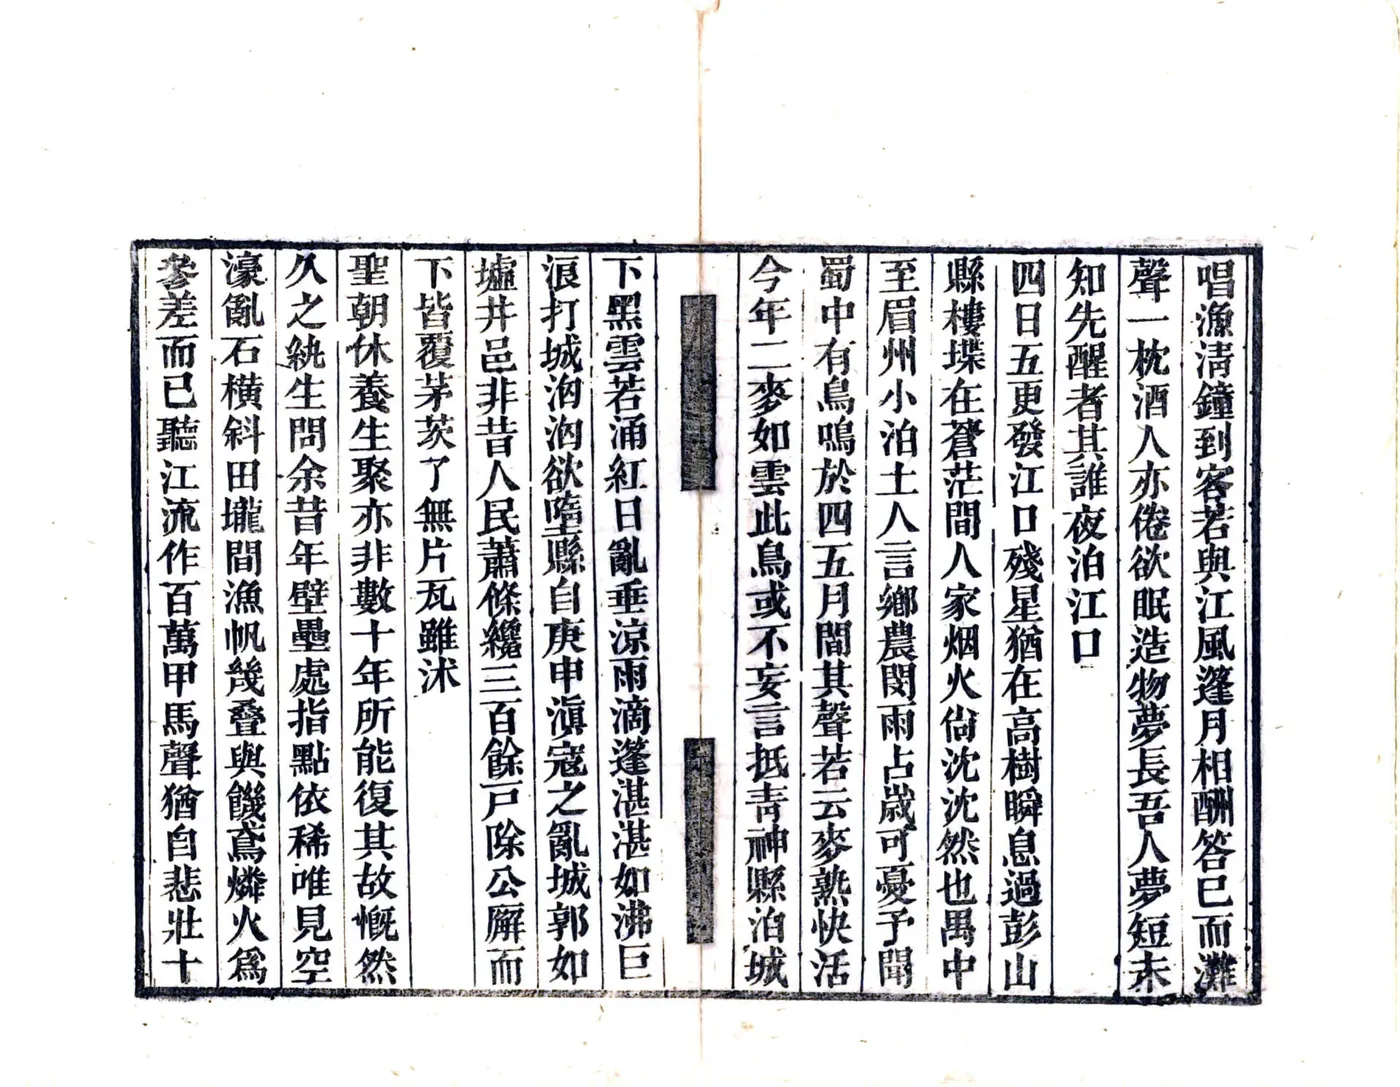 唱漁淸鐘到客若與江風篷月相酬答已而灘
聲一枕酒人亦倦欲眠造物夢長吾人夢短未
知先醒者其誰夜泊江口
四日五更發江口殘星猶在高樹瞬息過彭山
縣樓堞在蒼茫間人家烟火尙沈沈然也禺中
至眉州小泊土人言鄉農閔雨占歲可憂予聞
蜀中有鳥鳴於四五月間其聲若云麥熟快活
今年二麥如雲此鳥或不妄言抵靑神縣泊城
下黑雲若涌紅日亂垂涼雨滴篷湛湛如沸巨
浪打城洶洶欲墮縣自庚申滇寇之亂城郭如
墟井邑非昔人民蕭條纔三百餘戸除公廨而
下皆覆茅茨了無片瓦雖沐
聖朝休養生聚亦非數十年所能復其故慨然
久之紈生問余昔年壁壘處指點依稀唯見空
濠亂石橫斜田壠間漁帆幾叠與饑鳶燐火爲
參差而已聽江流作百萬甲馬聲猶自悲壯十